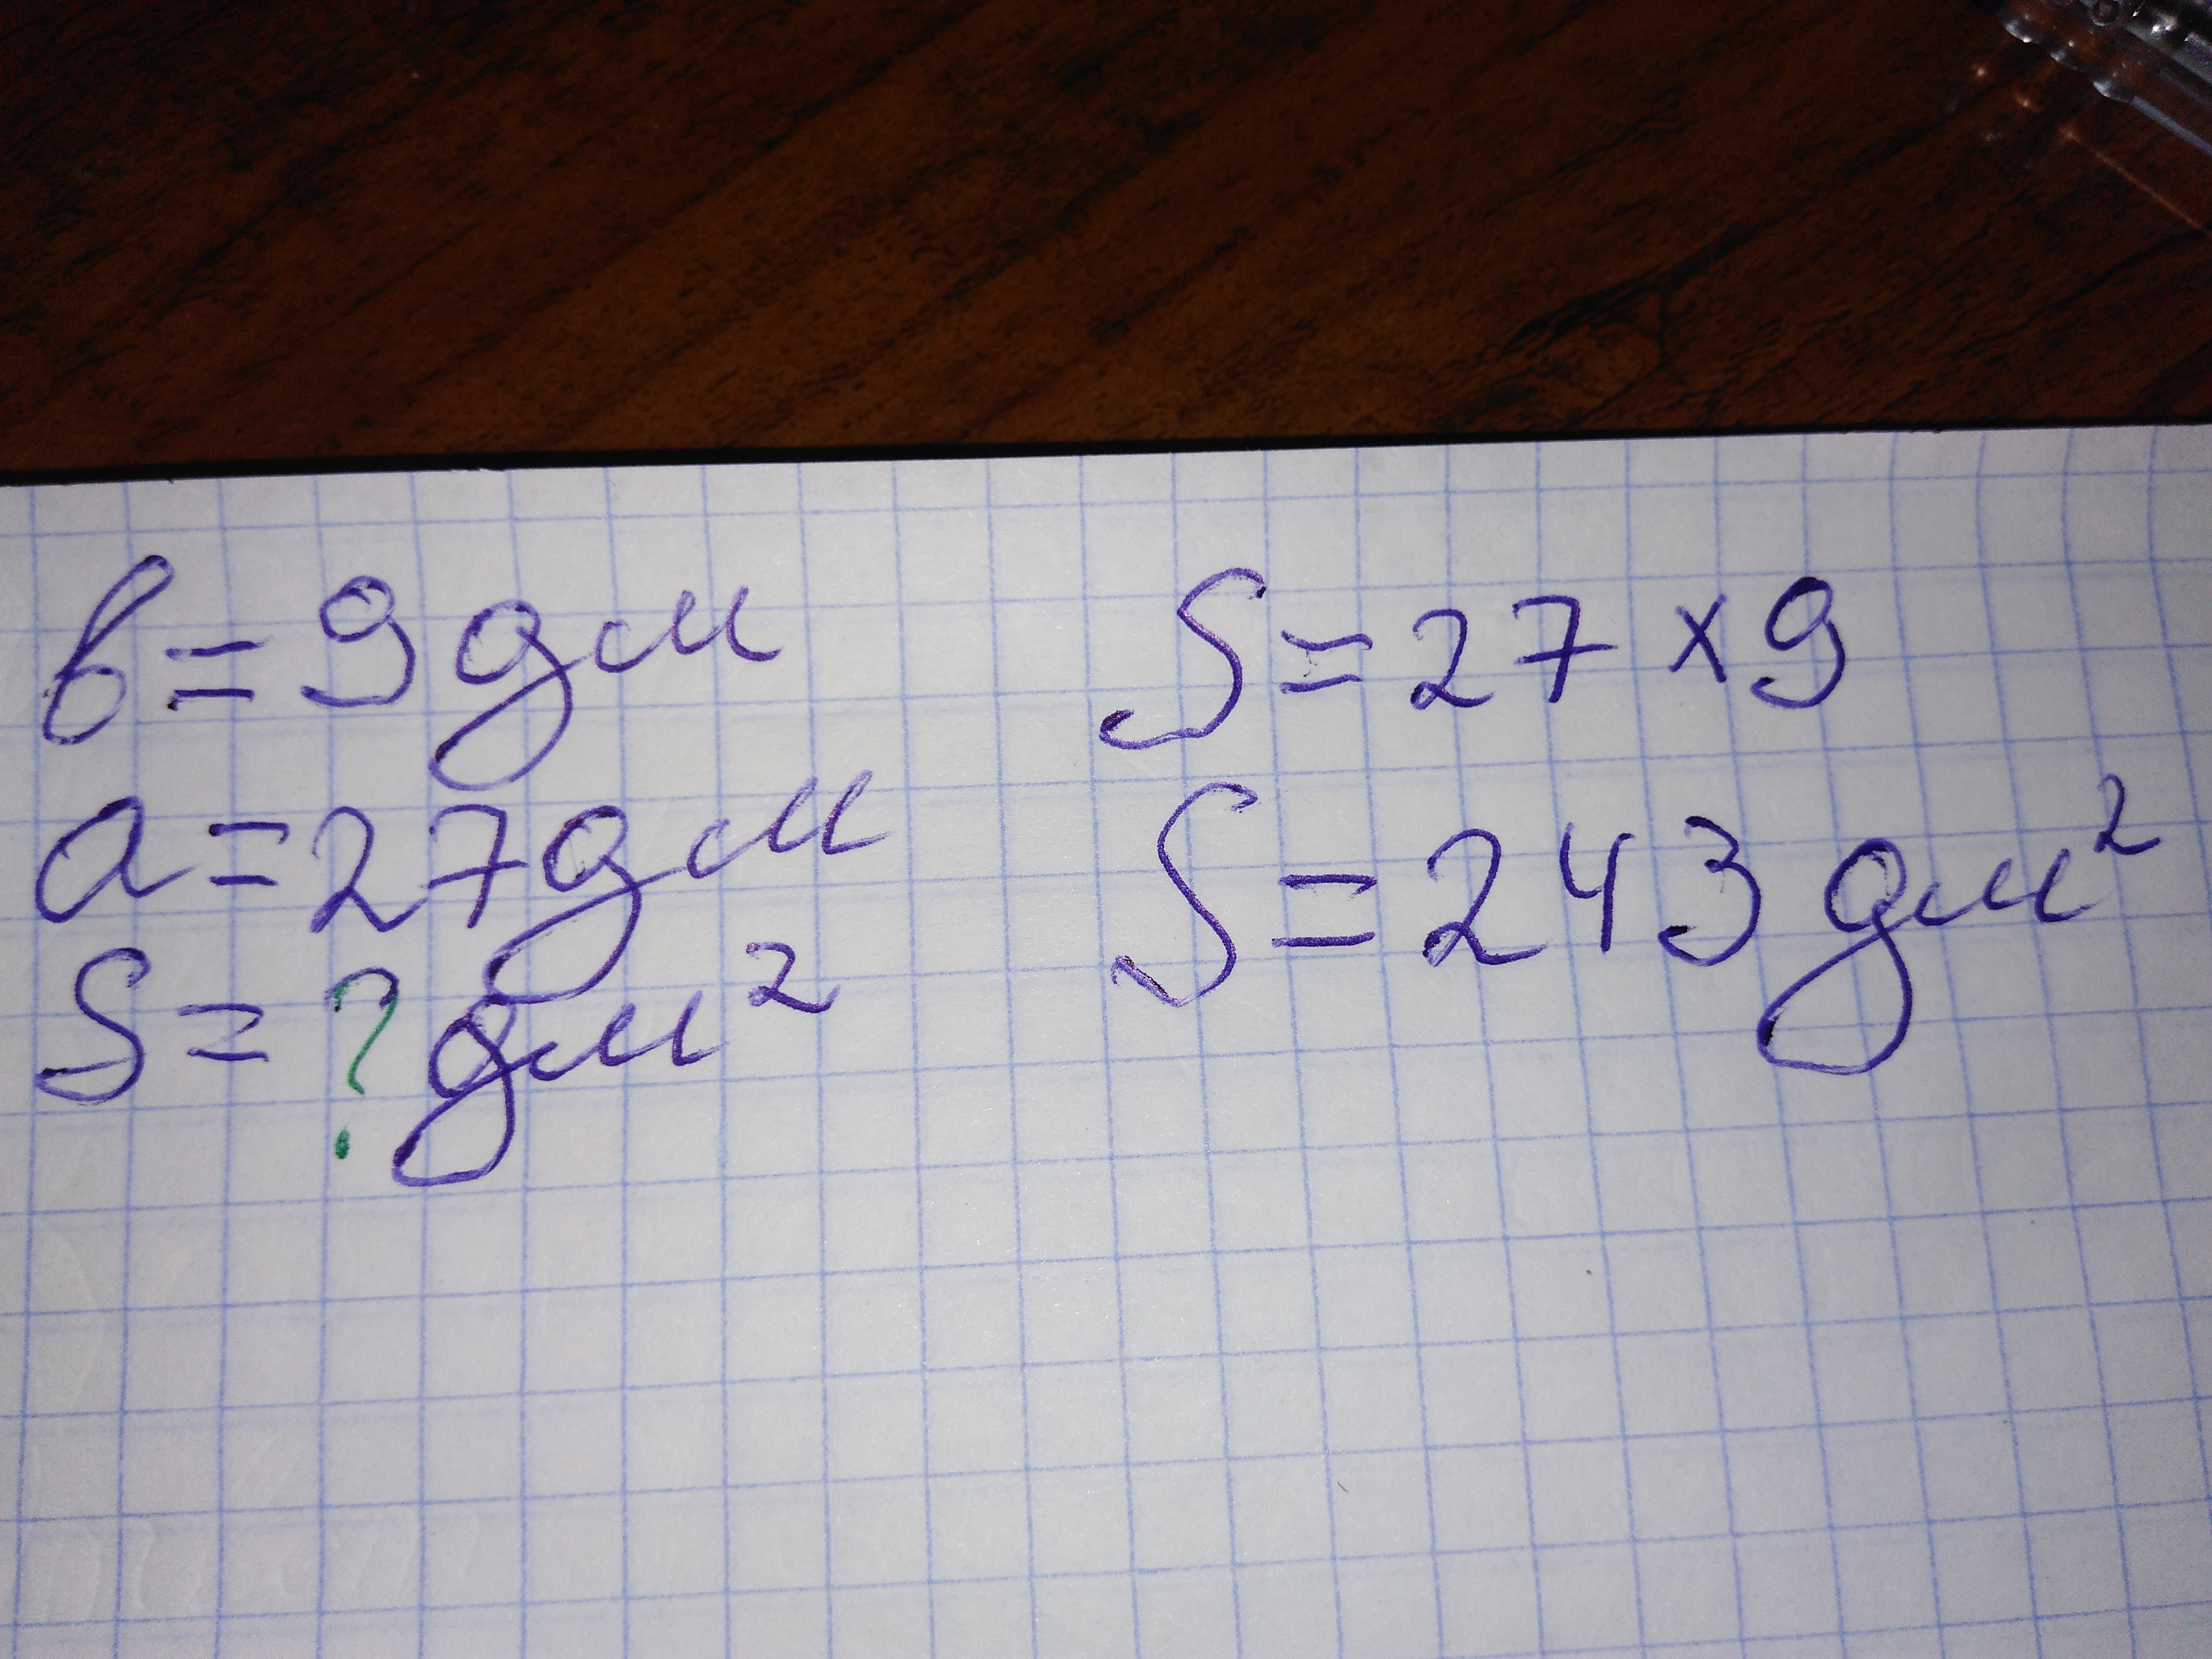 в = 9 дм
а = 27 дм
S = ? дм²
S = 27 × 9
S = 243 дм²